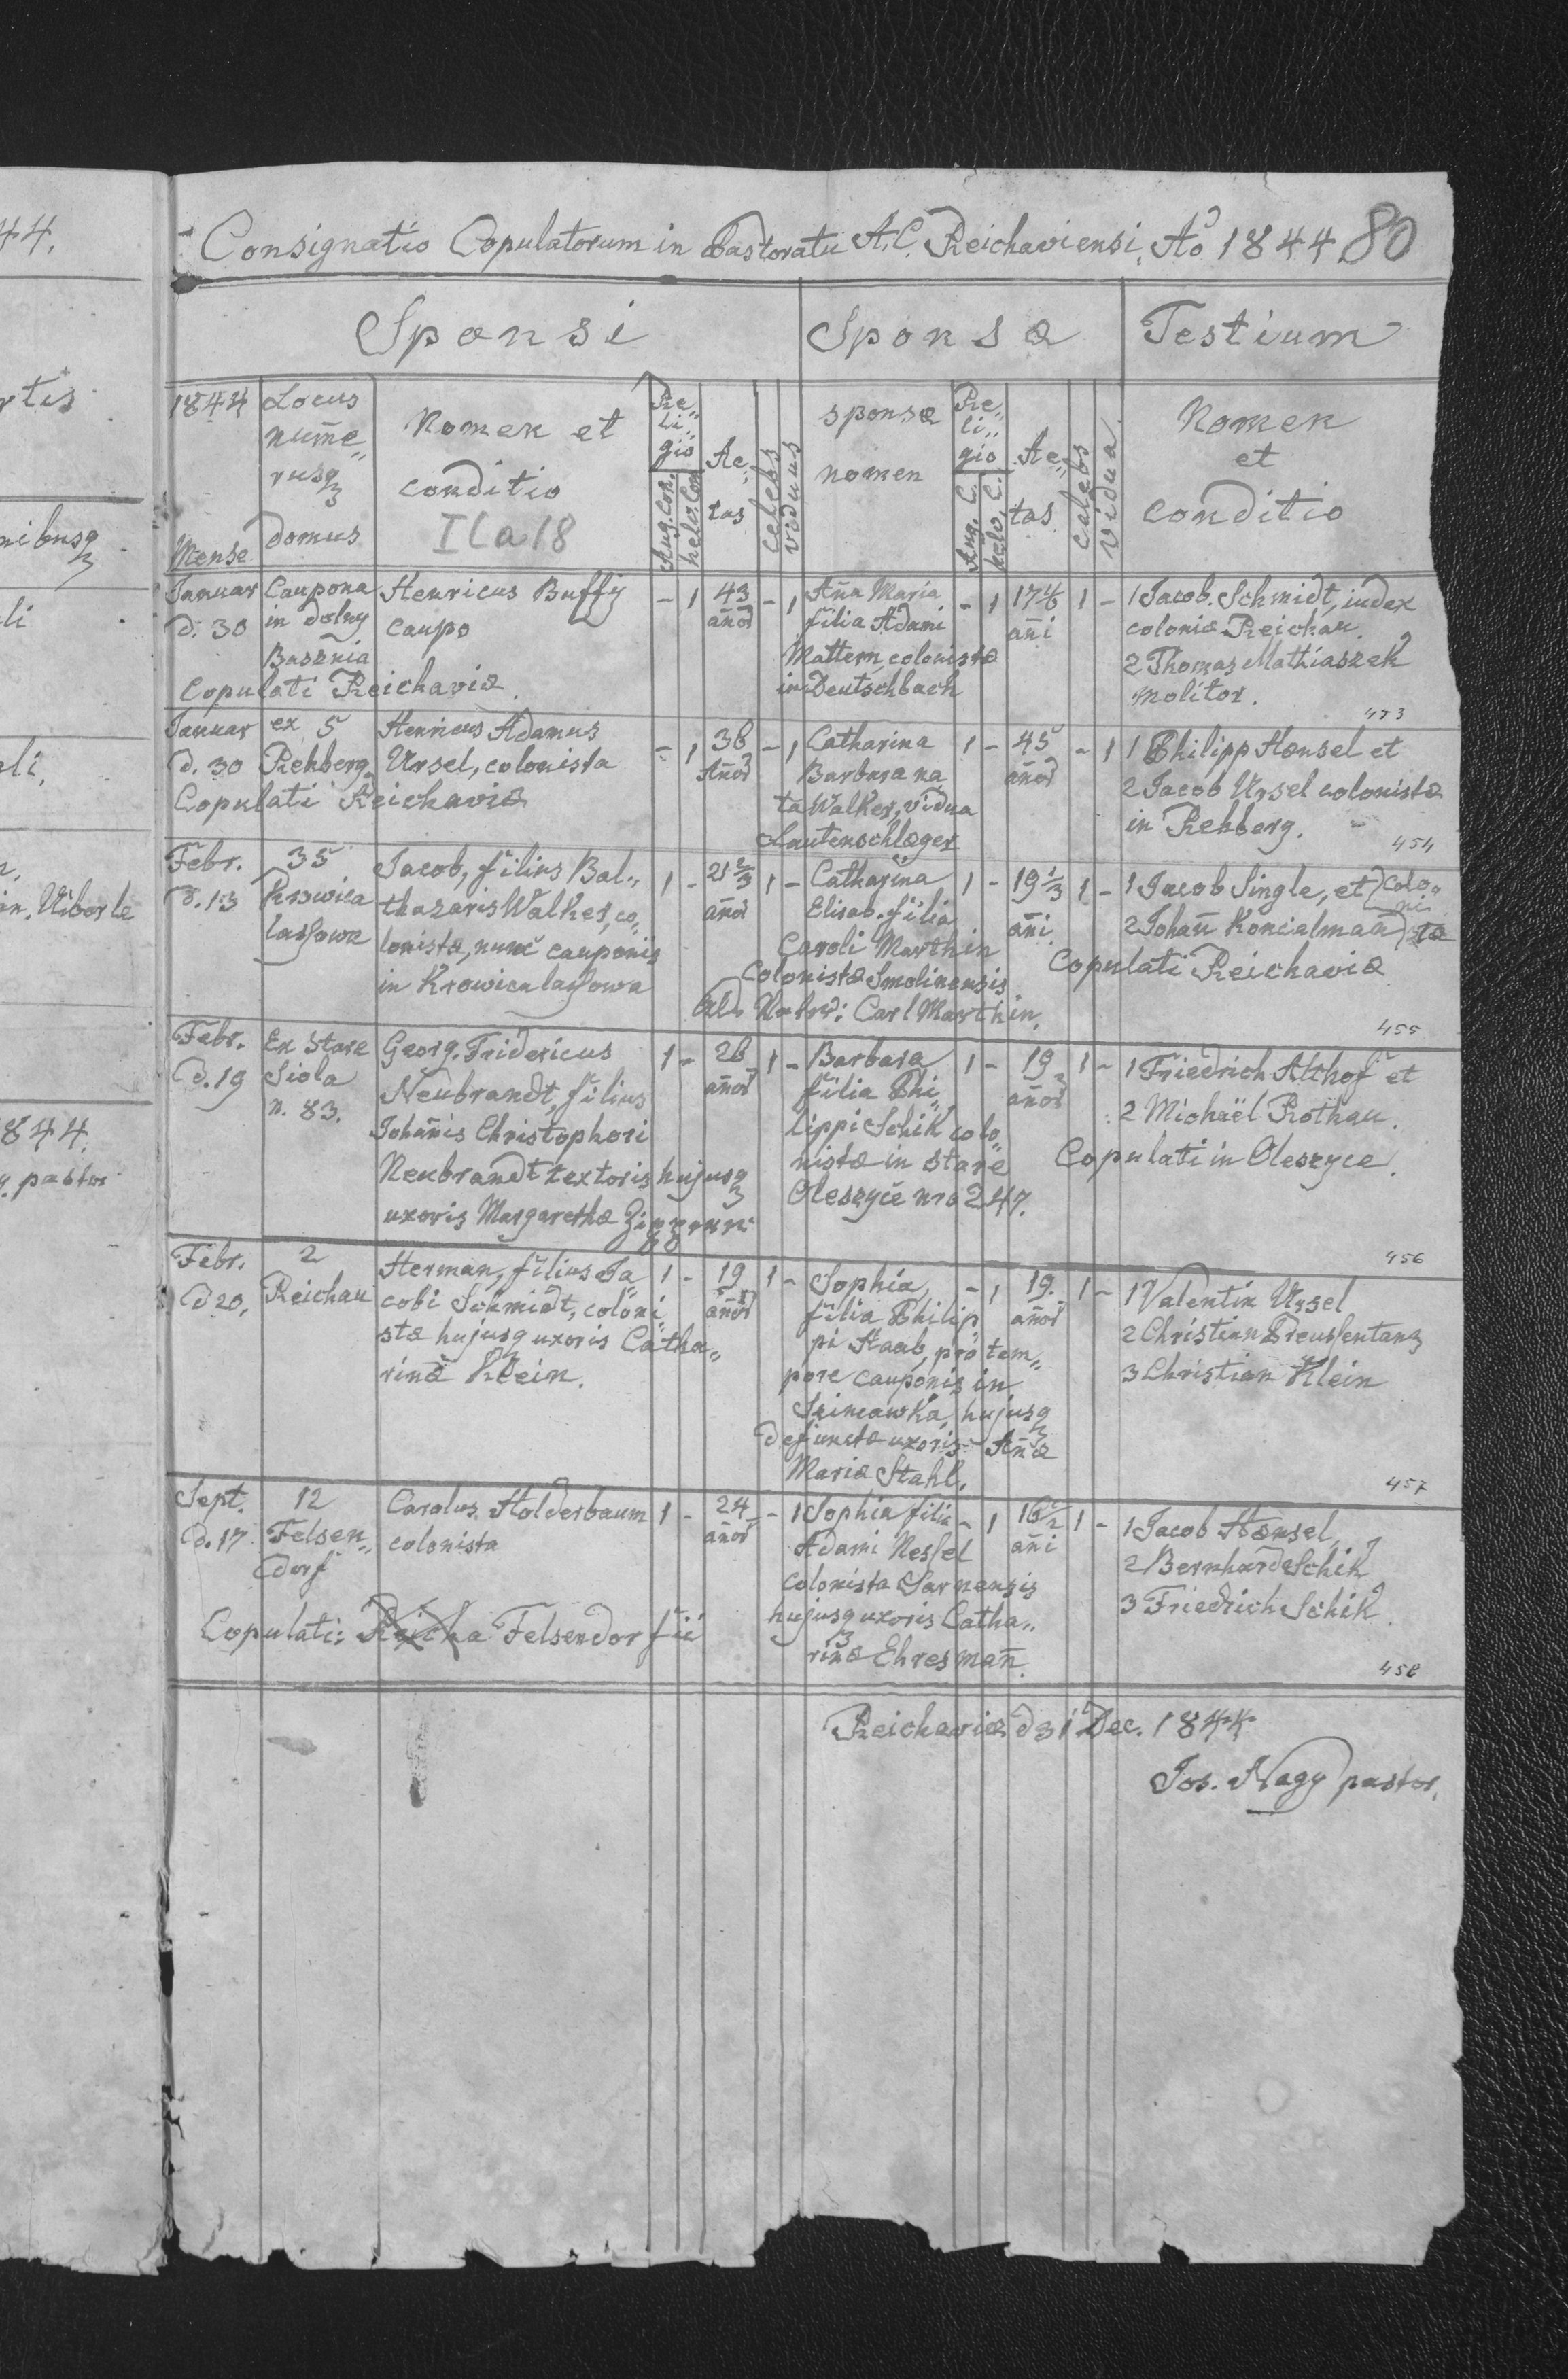 44.
rtis
nibusq
li
eli,
n. Uiborle
844.
y. pastor
Consignatio Copulatorum in Pastoratu A.C. Reichaviensi, Ao 1844 80
Sponsi
Sponsæ
Testium
1844
Mense
Locus
nume„
rusq
domus
Nomen et
conditio
ICa18
Re„
li„
gio
Aug. Con.
helv. Con
Ae„
tas
celebs
viduus
sponsæ
nomen
Re„
li„
gio
Aug. C.
helv. C.
Ae„
tas
calebs
vidua
Nomen
et
conditio
Januar
d. 30
Caupona
in dolny
Basznia
Henricus Buffy
caupo
Copulati Reichaviæ.
- 1
43
añor
- 1
Aña Maria
filia Adami
Mattern colonistæ
in Deutschbach
- 1
añi
1 -
1 Jacob. Schmidt, iudex
coloniæ Reichau.
2 Thomas Mathiaszek
molitor.
453
Januar
d. 30
ex 5
Rehberg
Henricus Adamus
Ursel, colonista
Copulati Reichaviæ
- 1
36
Añor
- 1
Catharina
Barbara na
ta Walker, vidua
Lautenschlæger
1 -
45
añor
- 1
1 Philipp Hænsel et
2 Jacob Ursel colonistæ
in Rehberg.
454
Febr.
d. 13
35
Krowica
lassowa
Jacob, filius Bal„
thazaris Walker, co„
lonistæ, nunc cauponis
in Krowica lassowa
1 -
21 2/3
añor
1 -
Catharina
Elisab. filia
Caroli Marthin
Colonistæ Smolinensis
Als Vater: Carl Marthin.
1 -
19 1/3
añi
1 -
1 Jacob Single, et } Colo„
ni
2 Johañ Koncalmañ } stæ
Copulati Reichaviæ
455
Febr.
d. 19
Ex Stare
Siola
n. 83.
Georg. Fridericus
Neubrandt, filius
Johañis Christophori
Neubrandt textoris hujusq
uxoris Margarethæ
1 -
26
añor
1 -
Barbara
filia Phi„
lippi Schik colo„
nistæ in stare
Oleszyce nro 247.
1 -
19
añor
1 -
1 Friedrich Althof et
2 Michaël Rothau.
Copulati in Oleszyce.
456
Febr.
d 20,
2
Reichau
Herman, filius Ja„
cobi Schmidt, coloni„
stæ hujusq uxoris Catha„
rinæ Klein.
1 -
19
añor
1 -
Sophia,
filia Philip„
pi Haab, pro tem„
pore cauponis in
hujusq
defunctæ uxoris Añæ
Mariæ Stahl.
- 1
19.
añor
1 -
1 Valentin Ursel
2 Christian Preussentanz
3 Christian Klein
457
Sept.
d. 17
12
Felsen„
dorf
Carolus Holderbaum
colonista
Copulati: Reicha Felsendorfii
1 -
24
añor
- 1
Sophia filia
Adami Nessel
colonista Sarnensis
hujusq uxoris Catha„
rinæ Ehresmañ.
- 1
16 1/2
añi
1 -
1 Jacob Hænsel,
2 Bernhard Schik
3 Friedrich Schik.
458
Reichaviæ d 31 Dec. 1844
Jos. Nagy pastor.